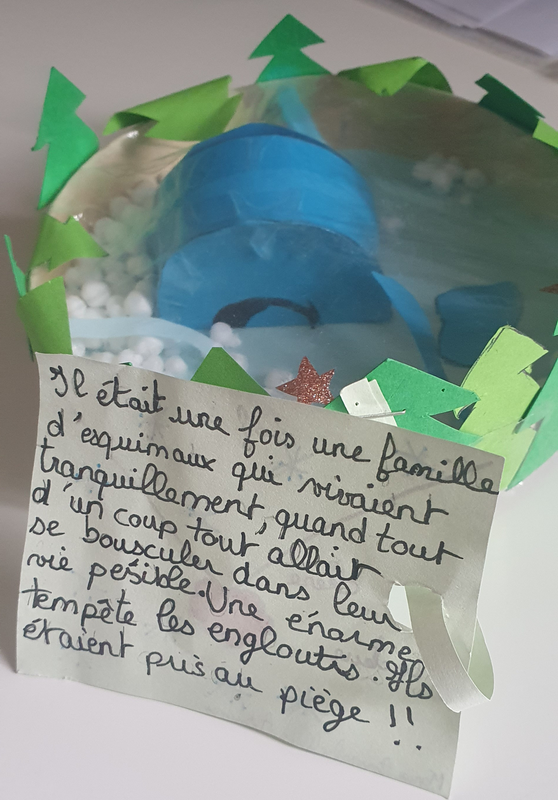 Il était une fois une famille
d'esquimaux qui vivaient
tranquillement, quand tout
d'un coup tout allait
se bousculer dans leur
vie pésible. Une énorme
tempête les engloutis. Ils
étaient pris au piège !!